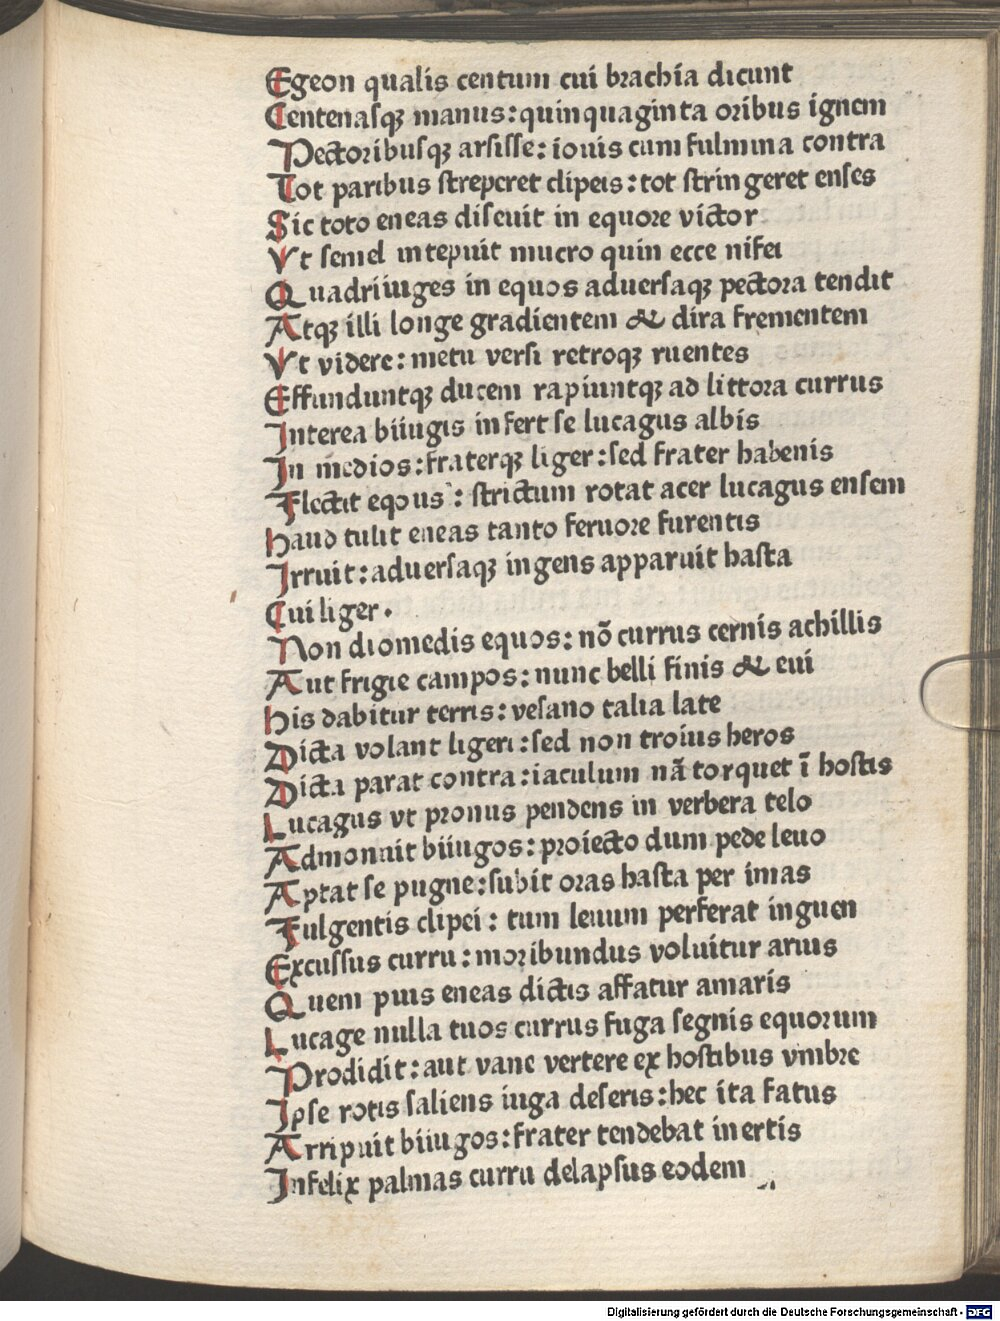 Egeon qualis centum cui brachia dicunt
Centenaſqꝫ manus: quinquaginta oribus ignem
Pectoribuſqꝫ arsisse: iouis cum fulmina contra
Tot paribus ſtreperet clipeis: tot ſtringeret enſes
Sic toto eneas diſeuit in equore victor
Vt ſemel intepuit mucro quin ecce nifei
Quadriiuges in equos aduerſaqꝫ pectora tendit
Atqꝫ illi longe gradientem & dira frementem
Vt videre: metu verſi retroqꝫ ruentes
Effunduntqꝫ ducem rapiuntqꝫ ad littora currus
Interea biiugis infert ſe lucagus albis
In medios: fraterqꝫ liger: ſed frater habenis
Flectit eqous: ſtrictum rotat acer lucagus enſem
haud tulit eneas tanto feruore furentis
Irruit: aduerſaqꝫ ingens apparuit haſta
Cui liger.
Non diomedis equos: nō currus cernis achillis
Aut frigie campos: nunc belli finis & eui
his dabitur terris: veſano talia late
Dicta volant ligeri: sed non troius heros
Dicta parat contra: iaculum nā torquet ī hoſtis
Lucagus vt pronus pendens in verbera telo
Admonuit biiugos: proiecto dum pede leuo
Aptat ſe pugne: ſubit oras haſta per imas
Fulgentis clipei: tum leuum perferat inguen
Excuſſus curru: moribundus voluitur aruis
Quem pius eneas dictis affatur amaris
Lucage nulla tuos currus fuga ſegnis equorum
Prodidit: aut vane vertere ex hoſtibus vmbre
Ipſe rotis ſaliens iuga deſeris: hec ita fatus
Arripuit biiugos: frater tendebat inertis
Infelix palmas curru delapſus eodem
Digitalisierung gefördert durch die Deutsche Forschungsgemeinschaft - DFG